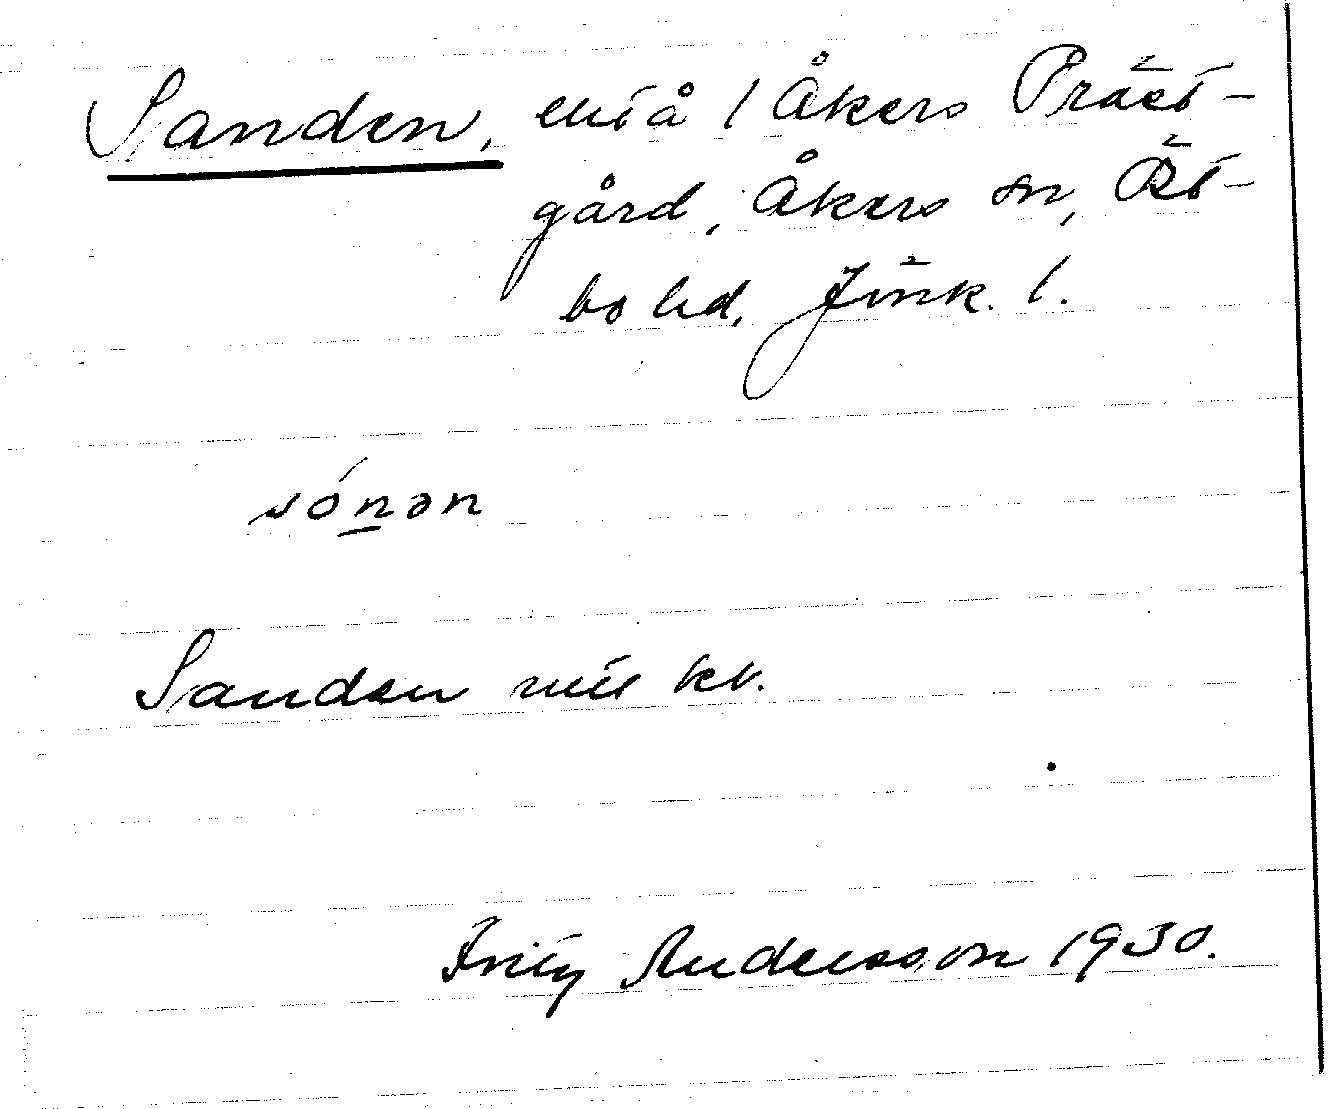 Sanden, utå / Åkers Präst-
gård, Åkers sn, Öst-
bo hd, Jönk. l.
sónən
Sanden mil kr.
Fritz Andersson 1930.